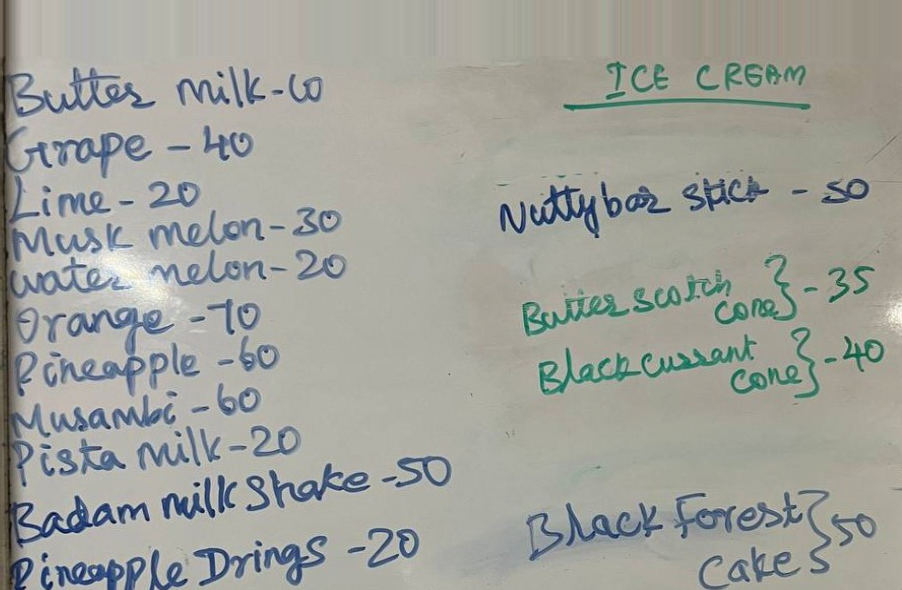 Butter milk-10
Grape - 40
Lime - 20
Musk melon-30
water melon-20
Orange -70
Pineapple -60
Musambi - 60
Pista milk-20
Badam milk Shake -50
Pineapple Drings -20
ICE CREAM
Nuttybar stick - 50
Butter scotch
cone} - 35
Black currant
cone} -40
Black Forest
Cake} 50